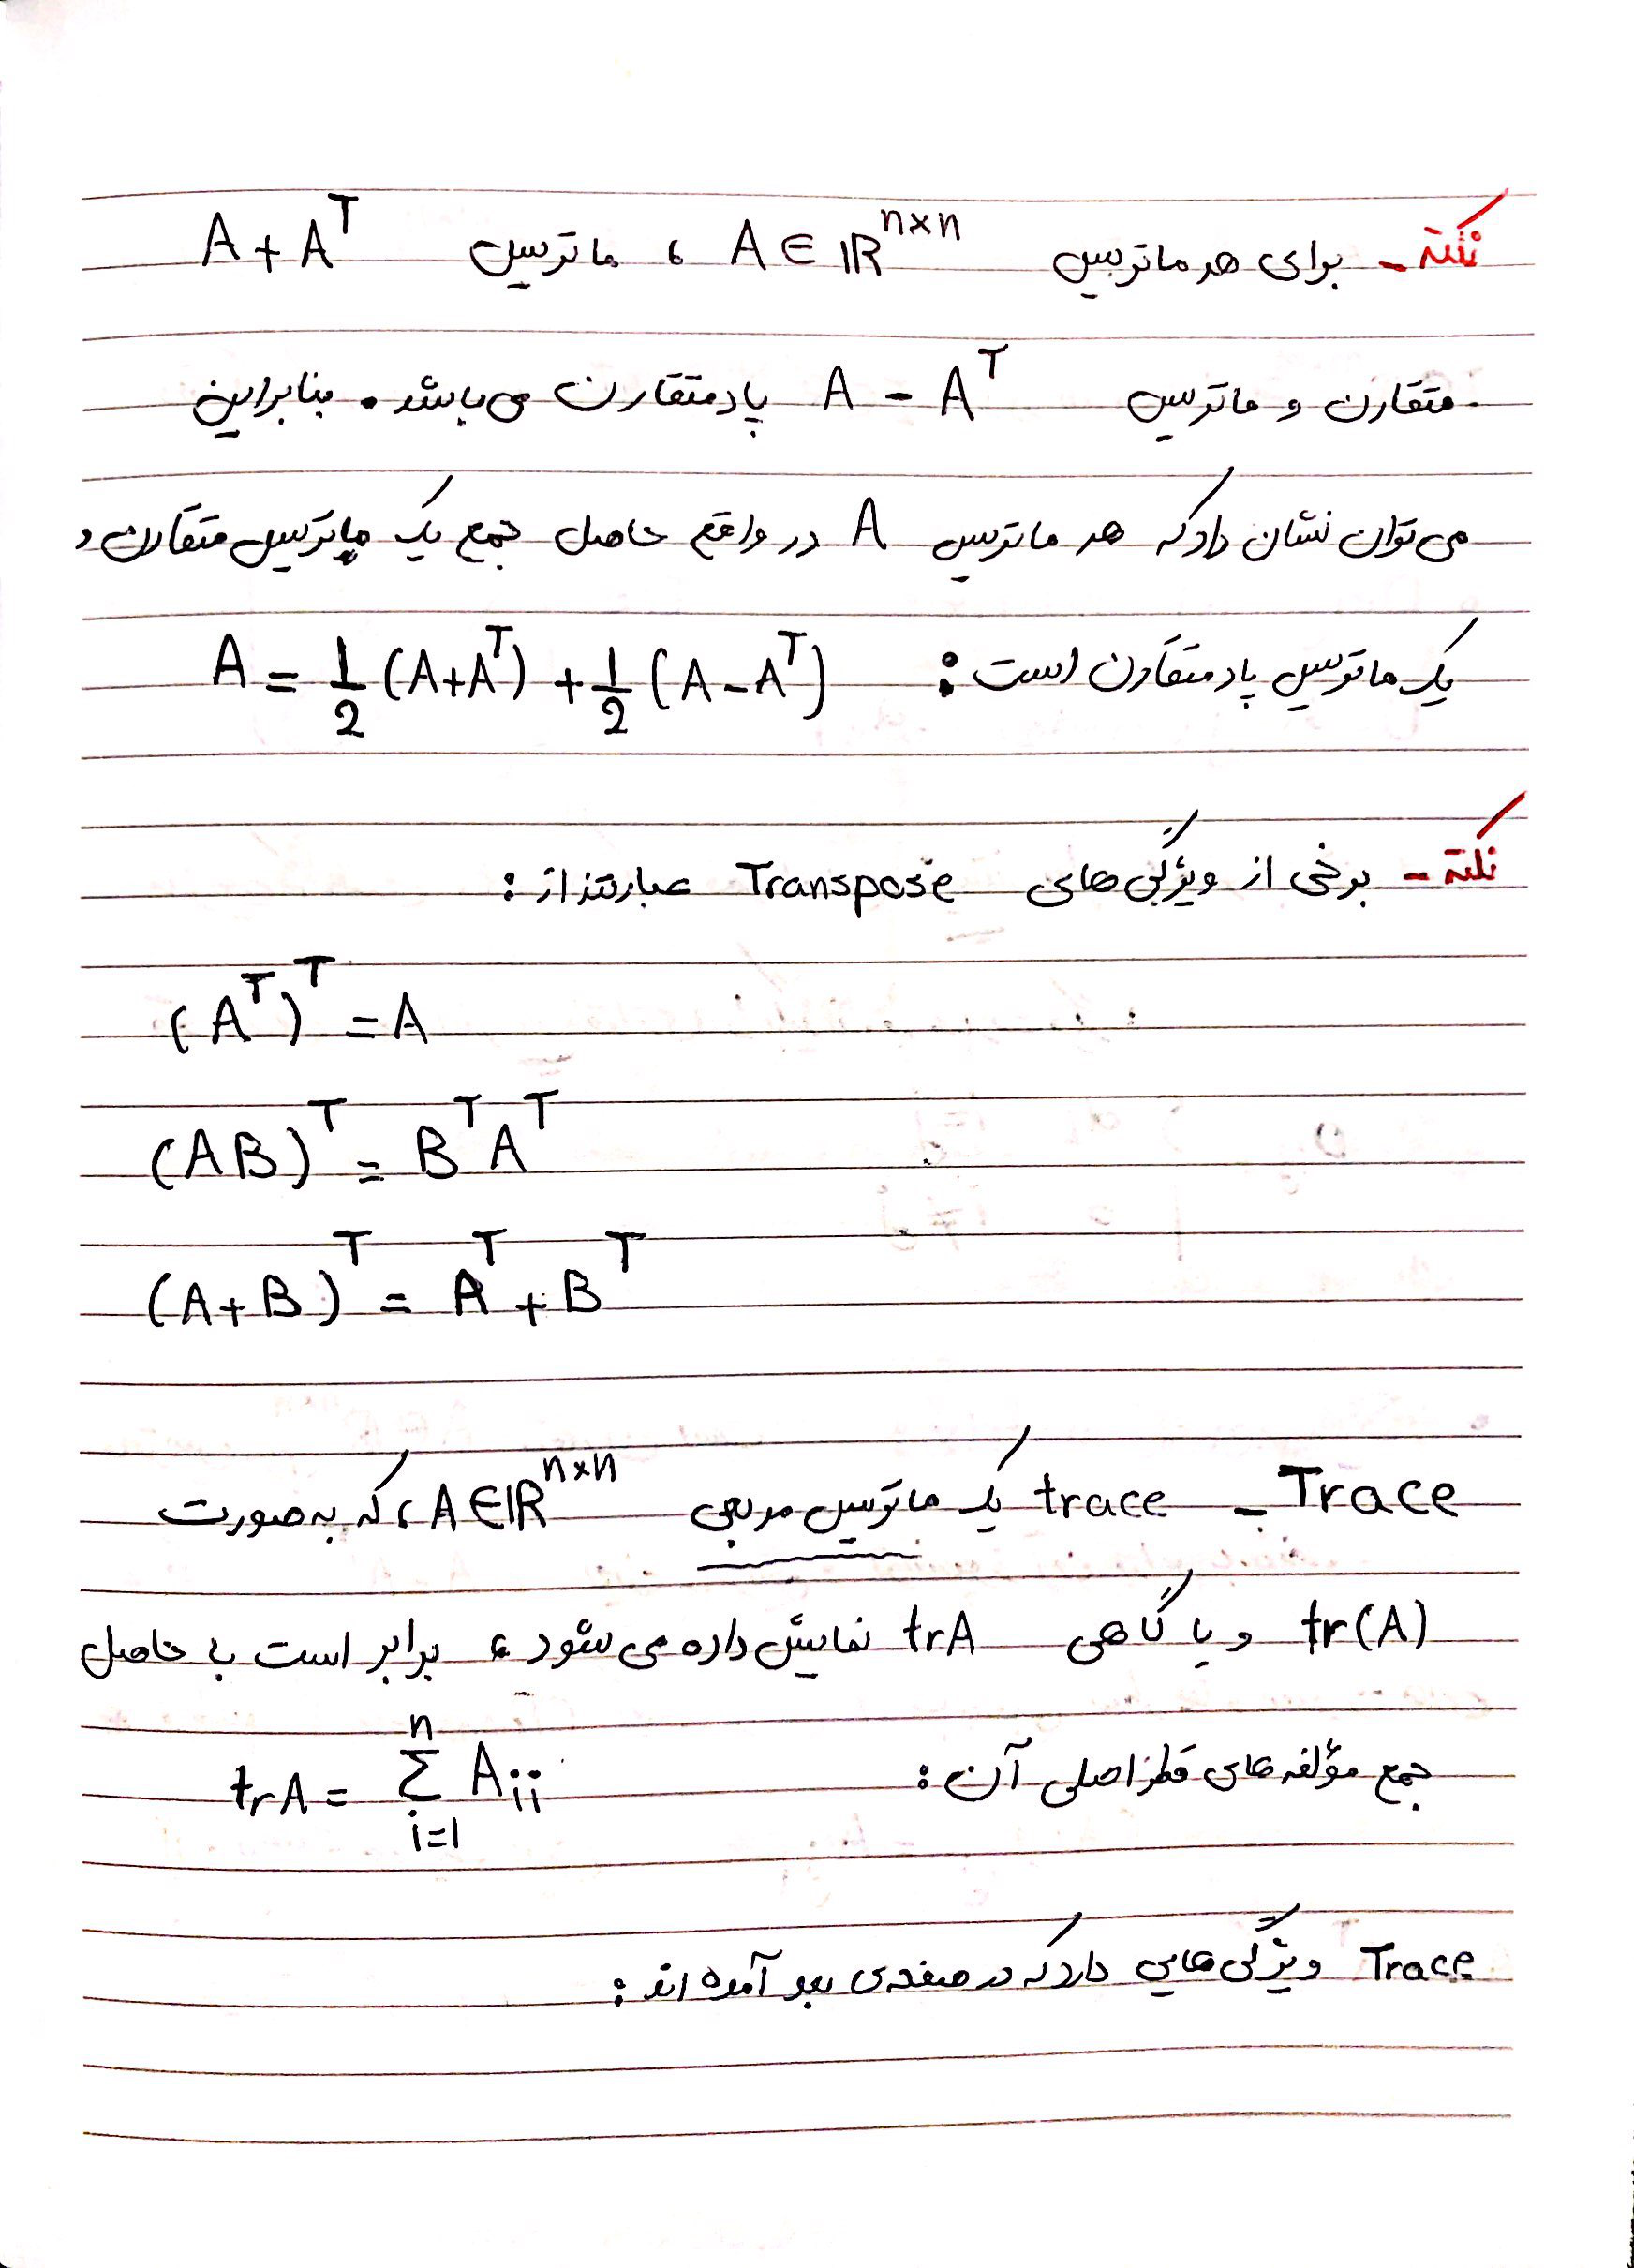 نکته - برای هر ماتریس A ∈ ℝⁿˣⁿ ، ماتریس A + Aᵀ
متقارن و ماتریس A - Aᵀ پادمتقارن می‌باشد. بنابراین
می‌توان نشان داد که هر ماتریس A در واقع حاصل جمع یک ماتریس متقارن و
یک ماتریس پادمتقارن است: A = 1/2 (A+Aᵀ) + 1/2 (A-Aᵀ)
نکته - برخی از ویژگی‌های Transpose عبارتند از:
(Aᵀ)ᵀ = A
(AB)ᵀ = BᵀAᵀ
(A+B)ᵀ = Aᵀ + Bᵀ
Trace - trace یک ماتریس مربعی A ∈ ℝⁿˣⁿ ، که به صورت
tr(A) و یا گاهی trA نمایش داده می‌شود، برابر است با حاصل
جمع مؤلفه‌های قطر اصلی آن: trA = Σⁿᵢ₌₁ Aᵢᵢ
Trace ویژگی‌هایی دارد که در صفحه‌ی بعد آمده‌اند: